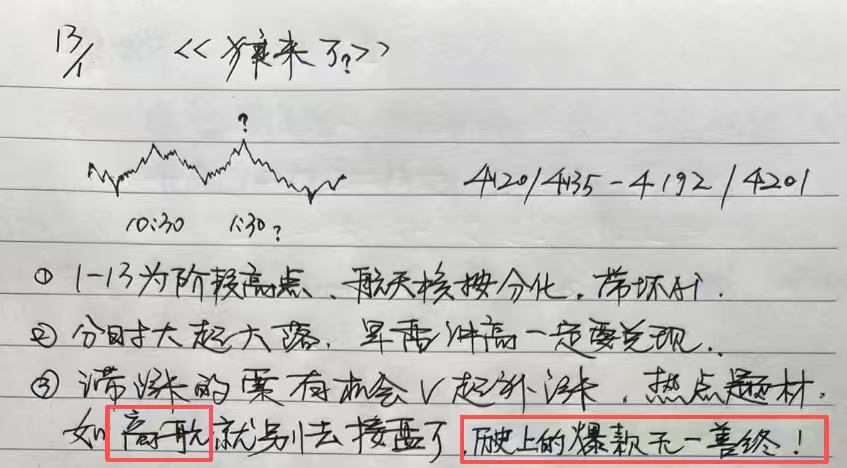 13/1 <<狼来了?>>
?
4120/4135-4192/4201
10:30 1:30?
① 1-13为阶段高点、航天核按分化,带坏AI.
② 分时大起大落,早盘冲高一定要兑现.
③ 滞涨的票有机会V起补涨,热点题材.
如高航就别去接盘了,历史上的爆款无一善终!